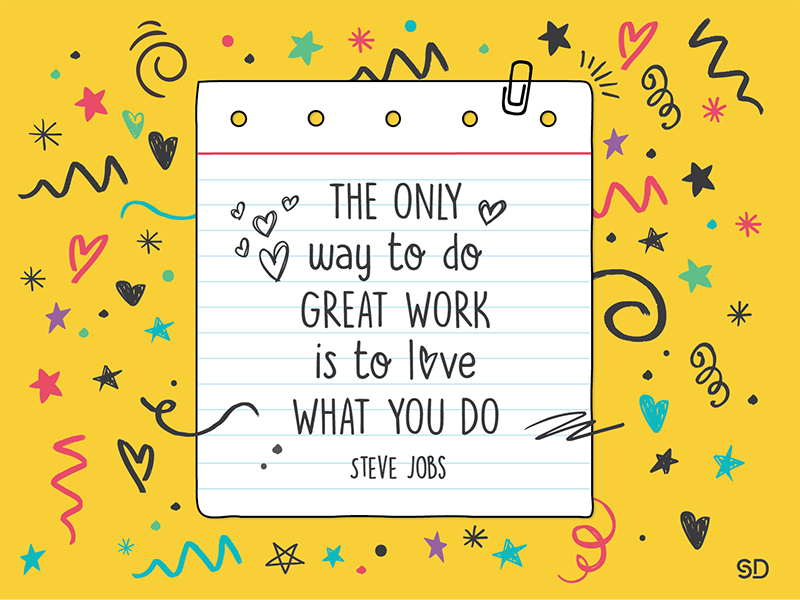 THE ONLY
way to do
GREAT WORK
is to love
WHAT YOU DO
STEVE JOBS
SD